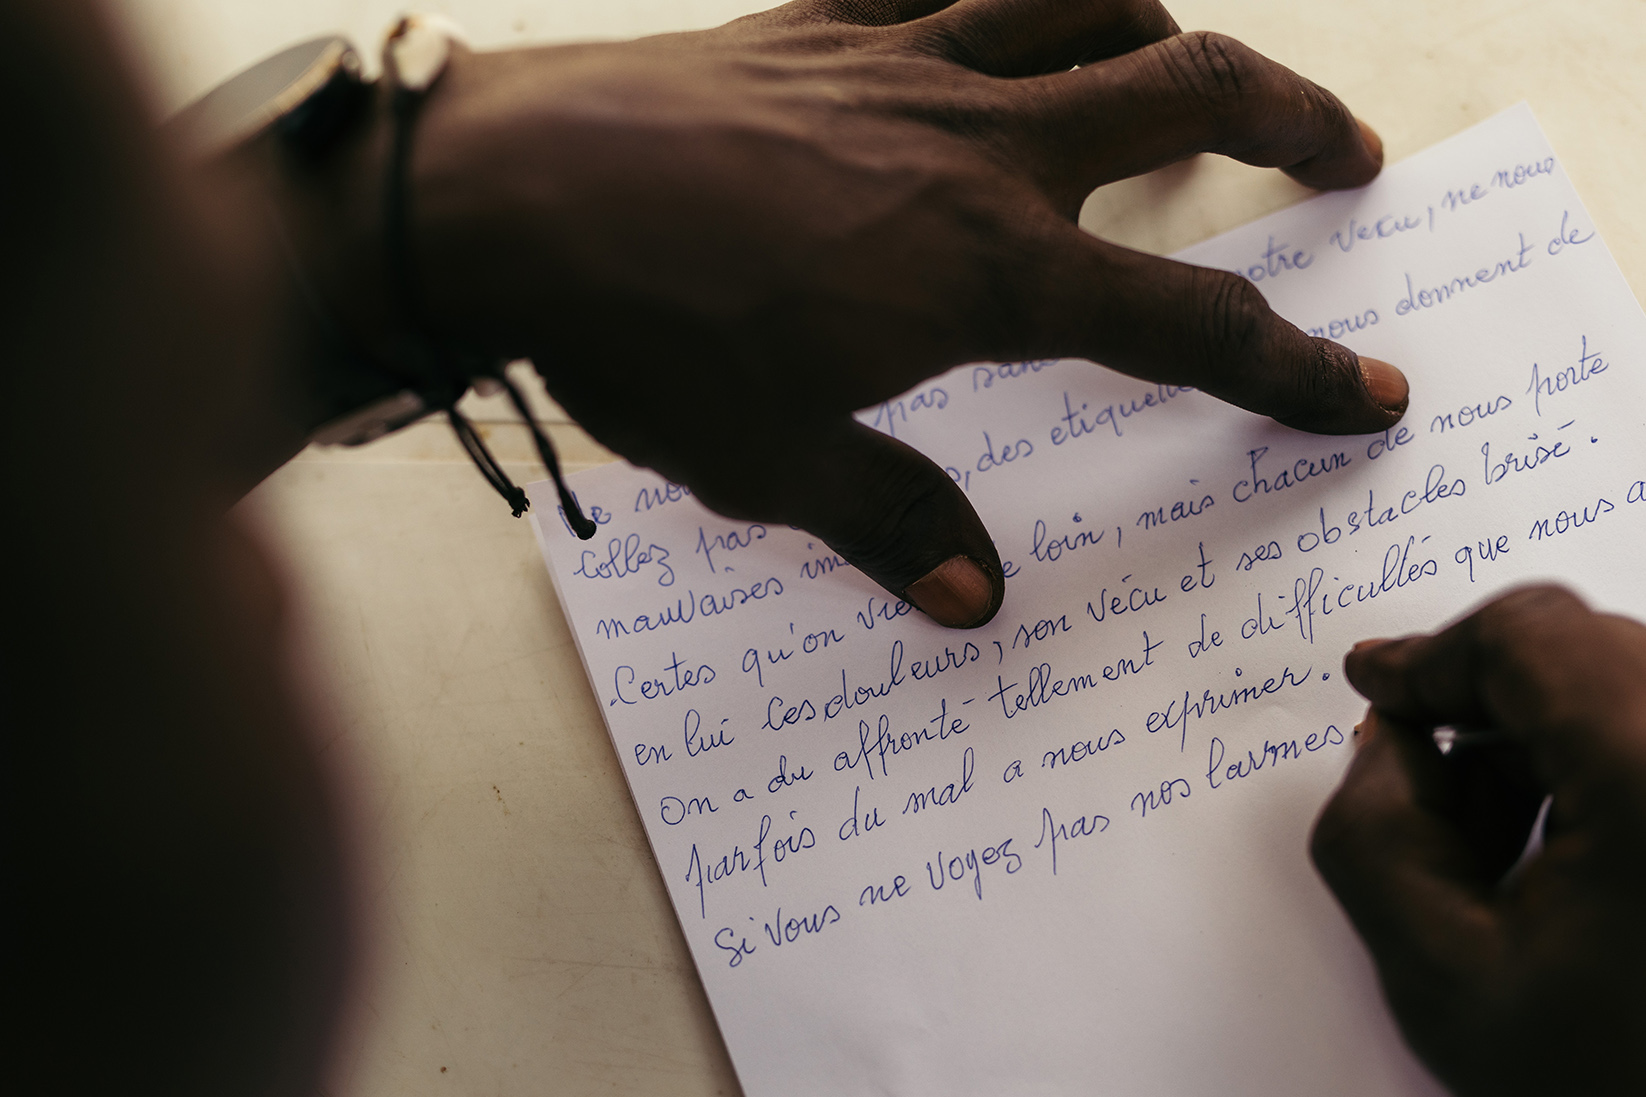 Ne pas notre vecu, ne nous
Collez pas des nous donnent de
mauvaises
Certes qu'on loin, mais chacun de nous porte
en lui ces douleurs, son vécu et ses obstacles brisé.
On a du affronté tellement de difficultés que nous a
parfois du mal a nous exprimer.
Si vous ne voyez pas nos larmes